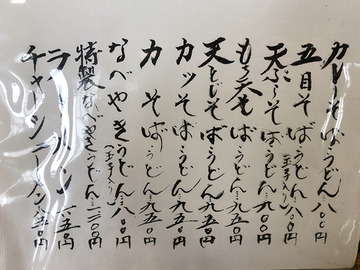 カレーそば うどん 八〇〇円
五目そば うどん 八〇〇円
(玉子入り)
天ぷらそば うどん 九〇〇円
もち天そば うどん 九五〇円
天とじそば うどん 九五〇円
カツそば うどん 九五〇円
力そば うどん 九五〇円
なべやきうどん 八〇〇円
(玉子入り)
特製なべやきうどん 一二〇〇円
ラーメン 六五〇円
チャーシューメン 九五〇円